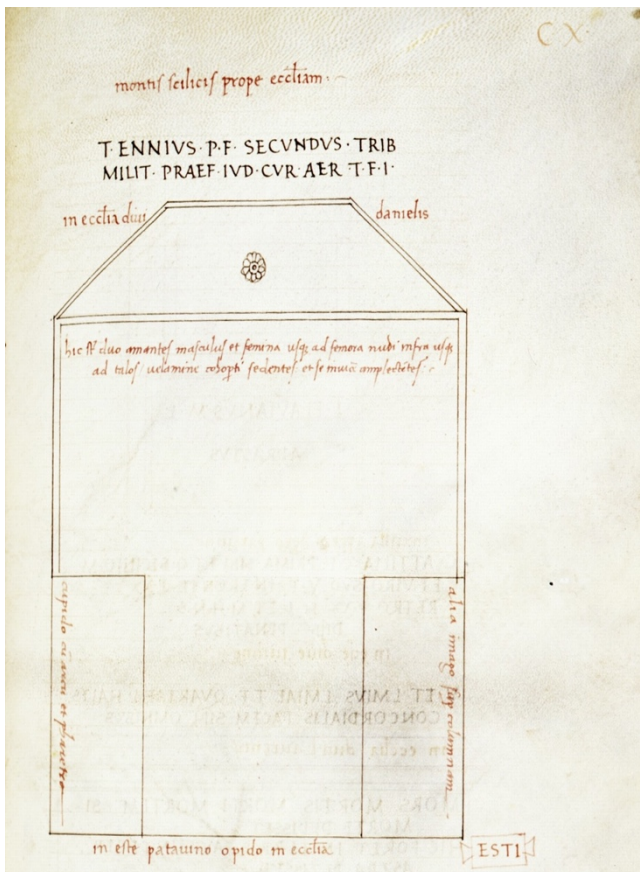 C X
montis scilicis prope ecclīam
T· ENNIVS · P· F· SECVNDVS · TRIB
MILIT· PRAEF· IVD· CVR· AER T· F· I·
in ecclīa diui danielis
hic st̄ duo amantes masculus et femina usq; ad femora nudi infra usq;
ad talos uelamine
sedentes et se
cupido
alia imago
in este patauino opido in ecclīa
ESTI